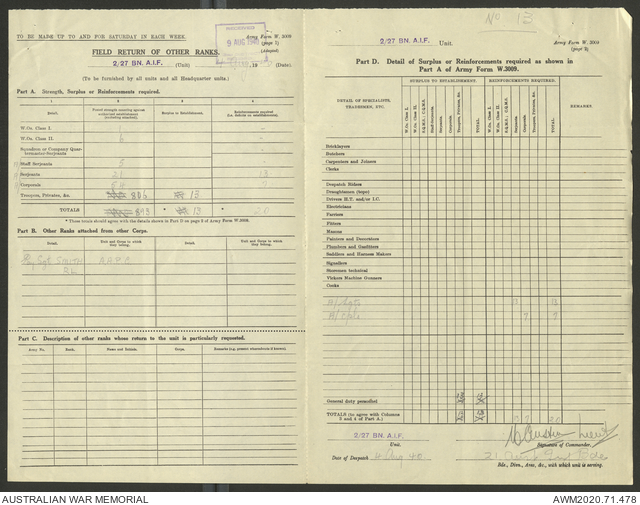 TO BE MADE UP TO AND FOR SATURDAY IN EACH WEEK.
Army Form W. 3009
(page 1)
(Adapted)
9 AUG 1940
FIELD RETURN OF OTHER RANKS.
2/27 BN. A.I.F. (Unit) 19 (Date)
(To be furnished by all units and all Headquarter units.)
Part A. Strength, Surplus or Reinforcements required.
1 2 3 4
Detail. Surplus to Establishment. Reinforcements required
W.Os. Class I. 1 -
W.Os. Class II. 6 -
Squadron or Company Quartermaster-Serjeants
Staff Serjeants 5
Serjeants 21 13
Corporals 54 7
Troopers, Privates, &c. 806 13
TOTALS 893 * 13 * 20
* These totals should agree with the details shown in Part D on page 3 of Army Form W.3009.
Part B. Other Ranks attached from other Corps.
Detail. Unit and Corps to which they belong. Detail. Unit and Corps to which they belong.
Sgt. SMITH A.A.P.C.
R.L.
Part C. Description of other ranks whose return to the unit is particularly requested.
Army No. Rank. Name and Initials. Corps. Remarks (e.g., present whereabouts if known).
No 13
2/27 BN. A.I.F. Unit.
Army Form W. 3009
(page 3)
Part D. Detail of Surplus or Reinforcements required as shown in
Part A of Army Form W.3009.
DETAIL OF SPECIALISTS, TRADESMEN, ETC.
SURPLUS TO ESTABLISHMENT. REINFORCEMENTS REQUIRED.
W.Os. Class I. W.Os. Class II. S.Q.M.S., C.Q.M.S. Staff-Serjeants. Serjeants. Corporals. Troopers, Privates, &c. TOTAL.
W.Os. Class I. W.Os. Class II. S.Q.M.S., C.Q.M.S. Staff-Serjeants. Serjeants. Corporals. Troopers, Privates, &c. TOTAL.
REMARKS.
Bricklayers
Butchers
Carpenters and Joiners
Clerks
Despatch Riders
Draughtsmen (topo)
Drivers H.T. and/or I.C.
Electricians
Farriers
Fitters
Masons
Painters and Decorators
Plumbers and Gasfitters
Saddlers and Harness Makers
Signallers
Storemen technical
Vickers Machine Gunners
Cooks
A/Sgts 13 13
A/Cpls 7 7
General duty personnel 13 13
TOTALS (to agree with Columns 3 and 4 of Part A.) 13 13 13 7 20
2/27 BN. A.I.F.
Unit.
Lieut
Signature of Commander.
Date of Despatch 4 Aug 40
21 Aust Inf Bde
Bde., Divn., Area, &c., with which unit is serving.
AUSTRALIAN WAR MEMORIAL
AWM2020.71.478